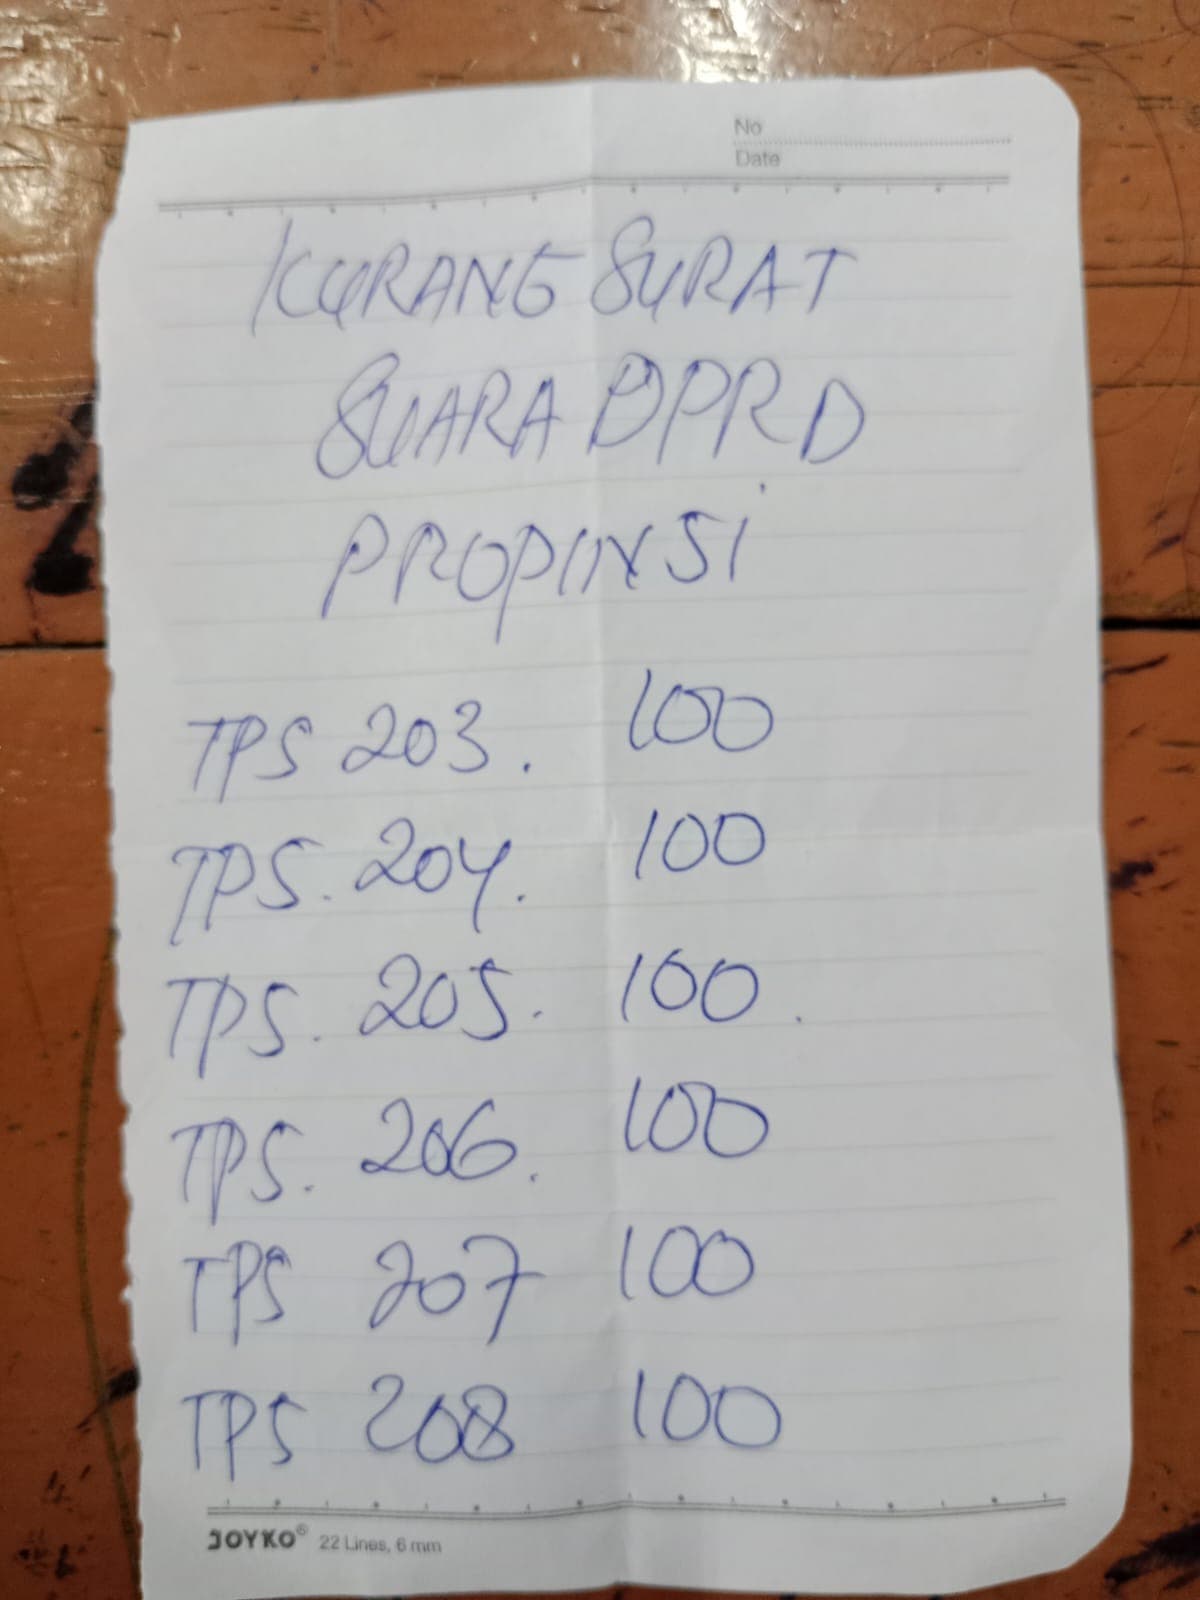 No
Date
KURANG SURAT
SUARA DPRD
PROPINSI
TPS 203. 100
TPS. 204. 100
TPS. 205. 100.
TPS. 206. 100
TPS 207 100
TPS 208 100
JOYKO® 22 Lines, 6 mm